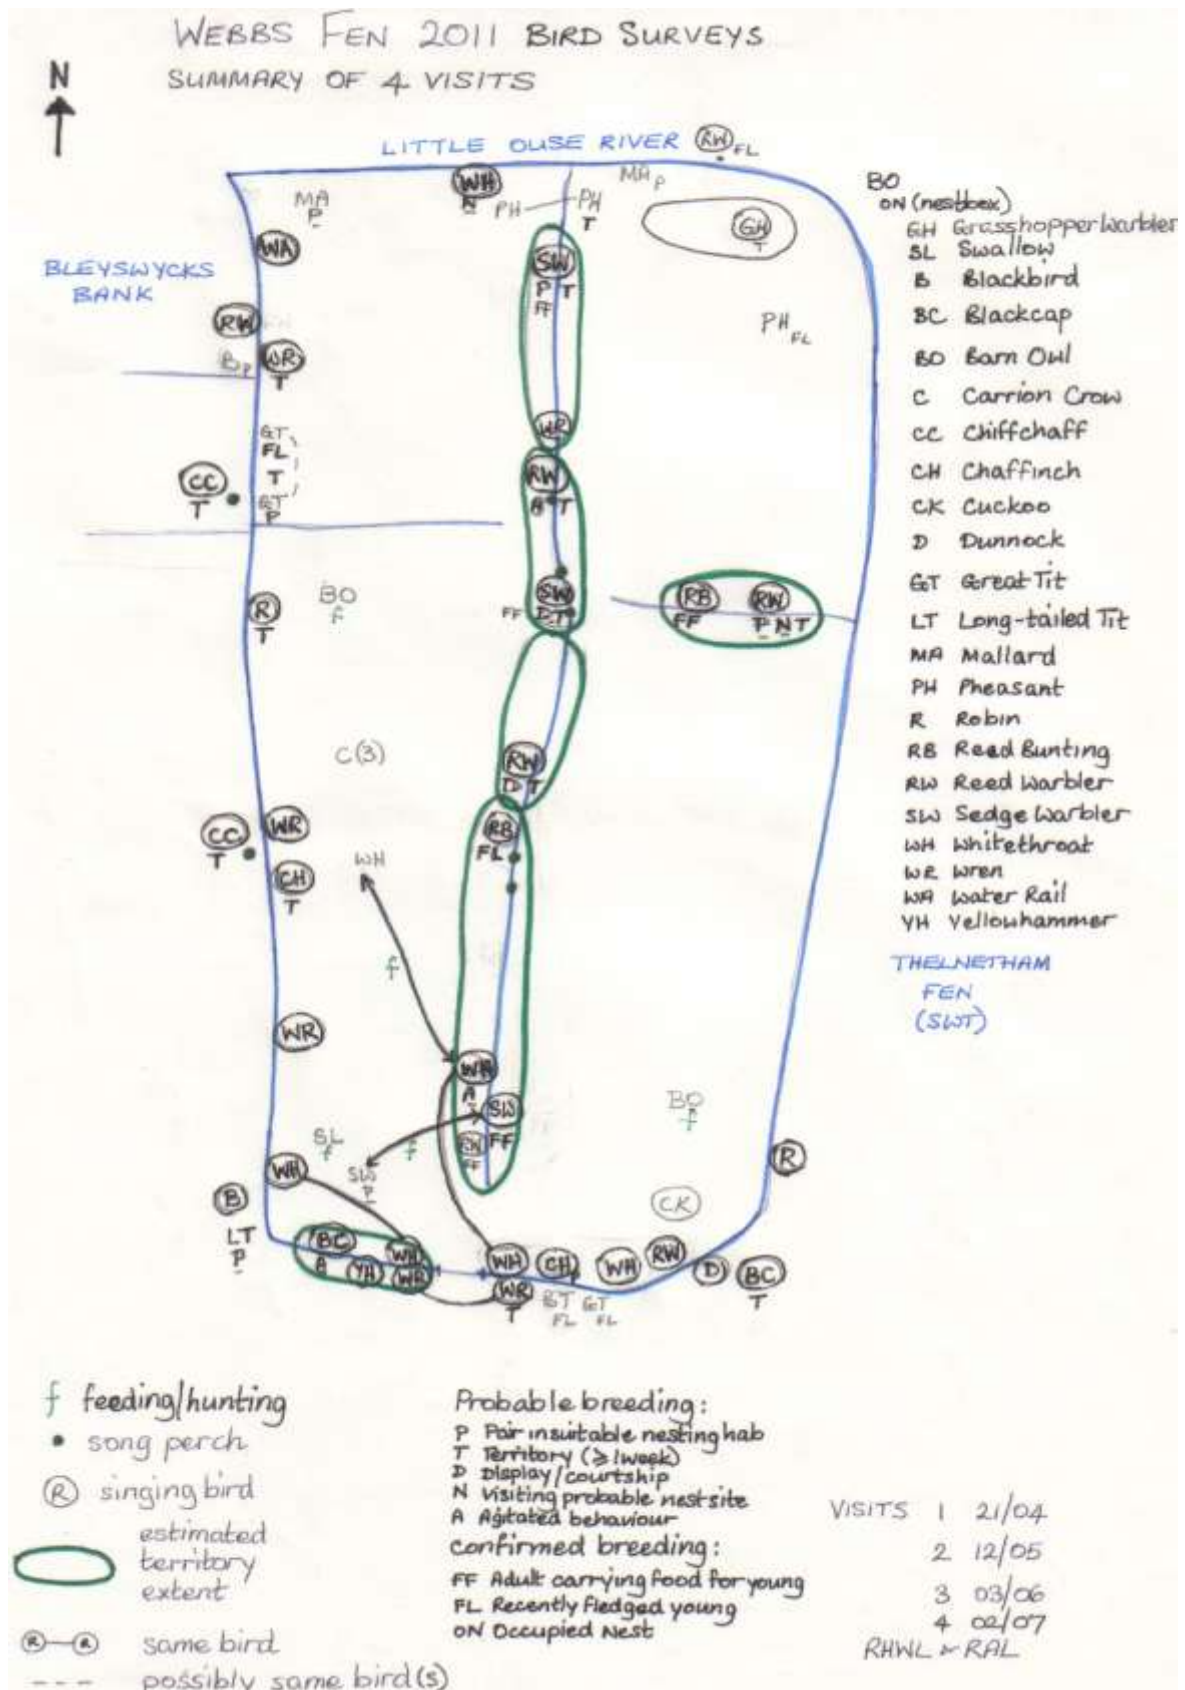 WEBBS FEN 2011 BIRD SURVEYS
SUMMARY OF 4 VISITS
N
LITTLE OUSE RIVER
RW FL
WH
N
MA
P
PH
PH
T
MA P
GH
T
WA
BLEYSWYCKS
BANK
SW
P T
FF
PH FL
RW
BP
WR
T
GT
FL
T
GT
P
CC
T
WR
RW
A T
SW
FF D T
RB
FF
RW
P N T
R
T
BO
f
C(3)
RW
D T
CC
T
WR
CH
T
RB
FL
WH
f
WR
WH
A
SW
FF
RW
FF
f
BO
f
SL
f
WH
B
LT
P
R
CK
BC
A
YH
WH
WR
WH
WR
T
CH
GT
FL
WH
RW
D
BC
T
BO
ON (nestbox)
GH Grasshopper Warbler
SL Swallow
B Blackbird
BC Blackcap
BO Barn Owl
C Carrion Crow
CC Chiffchaff
CH Chaffinch
CK Cuckoo
D Dunnock
GT Great Tit
LT Long-tailed Tit
MA Mallard
PH Pheasant
R Robin
RB Reed Bunting
RW Reed Warbler
SW Sedge Warbler
WH Whitethroat
WR Wren
WA Water Rail
YH Yellowhammer
THELNETHAM
FEN
(SWT)
f feeding/hunting
song perch
R singing bird
estimated
territory
extent
R R same bird
--- possibly same bird(s)
Probable breeding:
P Pair in suitable nesting hab
T Territory (≥1week)
D Display/courtship
N Visiting probable nest site
A Agitated behaviour
confirmed breeding:
FF Adult carrying food for young
FL Recently fledged young
ON Occupied Nest
VISITS 1 21/04
2 12/05
3 03/06
4 02/07
RHWL & RAL